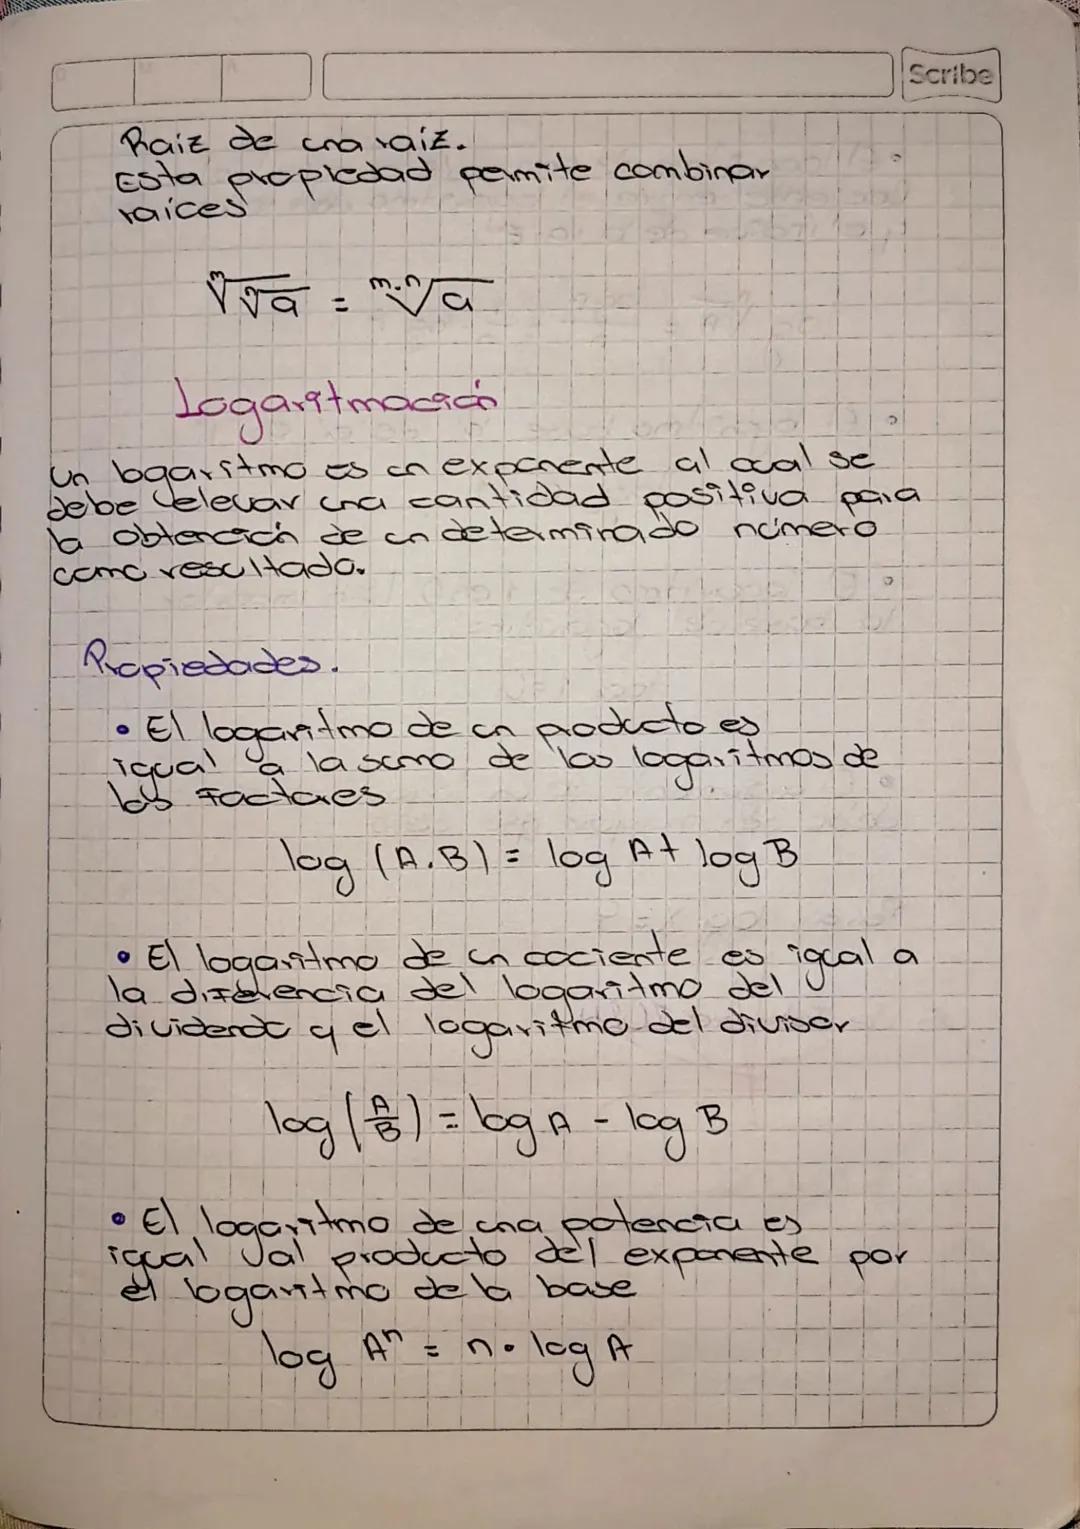 Scribe
Raiz de una raíz.
Esta propiedad permite combinar
raíces
ᵐ√ⁿ√a = ᵐ·ⁿ√a
Logaritmación
Un logaritmo es un exponente al cual se
debe elevar una cantidad positiva para
la obtención de un determinado número
como resultado.
Propiedades.
• El logaritmo de un producto es
igual a la suma de los logaritmos de
los factores
log (A.B) = log A + log B
• El logaritmo de un cociente es igual a
la diferencia del logaritmo del
dividendo y el logaritmo del divisor
log (A/B) = log A - log B
• El logaritmo de una potencia es
igual al producto del exponente por
el logaritmo de la base
log Aⁿ = n • log A